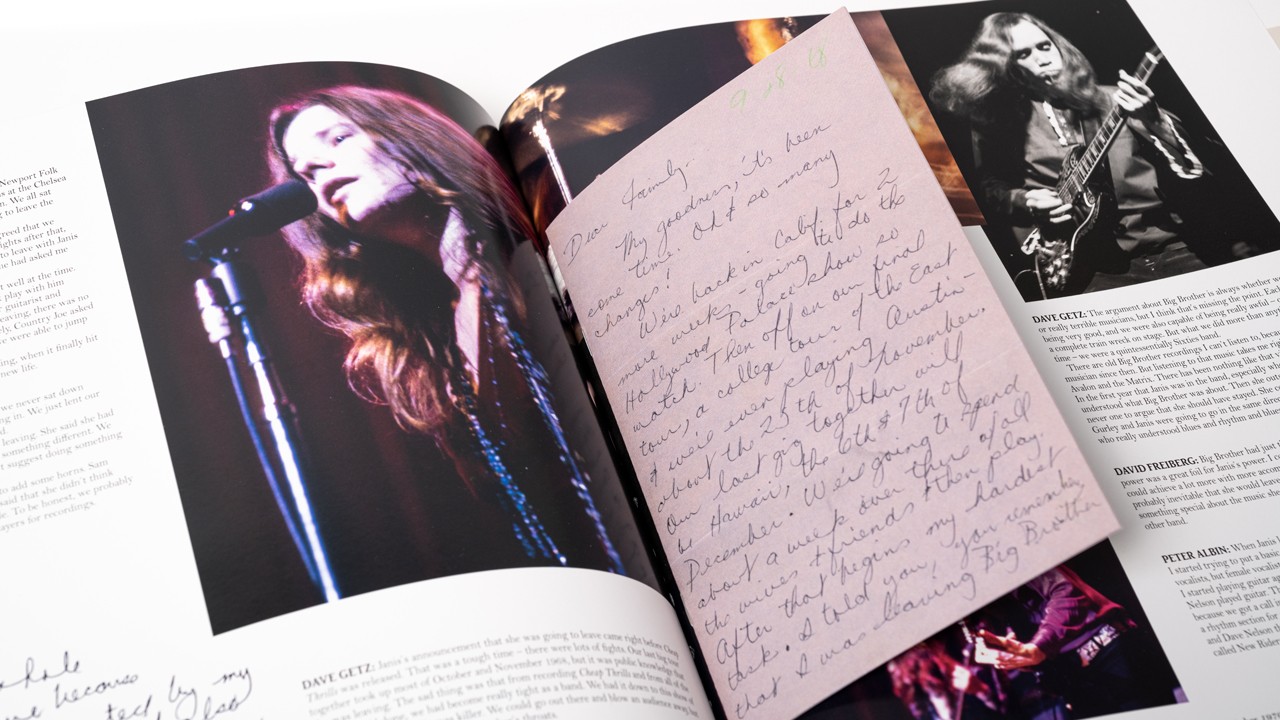 Newport Folk
s at the Chelsea
n. We all sat
g to leave the
greed that we
ights after that,
to leave with Janis
e had asked me
t well at the time.
play with him
guitarist and
leaving; there was no
ely, Country Joe asked
were able to jump
ing, when it finally hit
new life.
we never sat down
ng in. We just lent our
leaving. She said she had
something different. We
t suggest doing something
to add some horns. Sam
said that she didn't think
e. To be honest, we probably
ayers for recordings.
whole
because
by my
also
DAVE GETZ: Janis's announcement that she was going to leave came right before Cheap
Thrills was released. That was a tough time – there were lots of fights. Our last big tour
together took up most of October and November 1968, but it was public knowledge that
was leaving. The sad thing was that from recording Cheap Thrills and from all of the
we had become really tight as a band. We had it down to this show of
killer. We could go out there and blow an audience away
throats.
9 28 68
Dear Family -
My goodness, it's been
some time. Oh & so many
changes!
We're back in Calif for 2
more weeks - going to do the
Hollywood Palace show so
watch. Then off on our final
tour, a college tour of the East -
& we're even playing Austin -
about the 25th of November.
Our last gig together will
be Hawaii, the 6th & 7th of
December. We're going to spend
about a week over there w/ all
the wives & friends & then play.
After that begins my hardest
task. I told you, you remember
that I was leaving Big Brother
DAVE GETZ: The argument about Big Brother is always whether
or really terrible musicians, but I think that's missing the point.
being very good, and we were also capable of being really
a complete train wreck on stage. But what we did more than
time – we were a quintessentially Sixties band.
There are old Big Brother recordings I can't listen to,
musician since then. But listening to that music takes me
Avalon and the Matrix. There has been nothing like
In the first year that Janis was in the band, especially
understood what Big Brother was about. Then she
never one to argue that she should have stayed.
Gurley and Janis were going to go in the same
who really understood blues and rhythm and
DAVID FREIBERG: Big Brother had just
power was a great foil for Janis's power. I
could achieve a lot more with more
probably inevitable that she would leave
something special about the music
other band.
PETER ALBIN: When Janis
I started trying to put a band
vocalists, but female
I started playing guitar
Nelson played guitar.
because we got a call
a rhythm section for
and Dave Nelson
called New